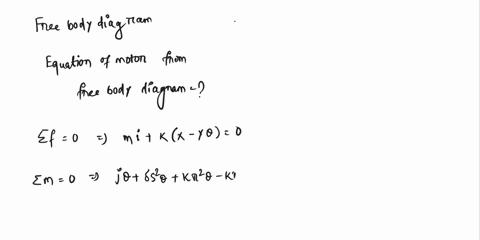 Free body diagram
Equation of motor from
free body diagram =?
Σf = 0 ⇒ mi + K(x - yθ) = 0
Σm = 0 ⇒ jθ + 6s²θ + Kπ²θ - K